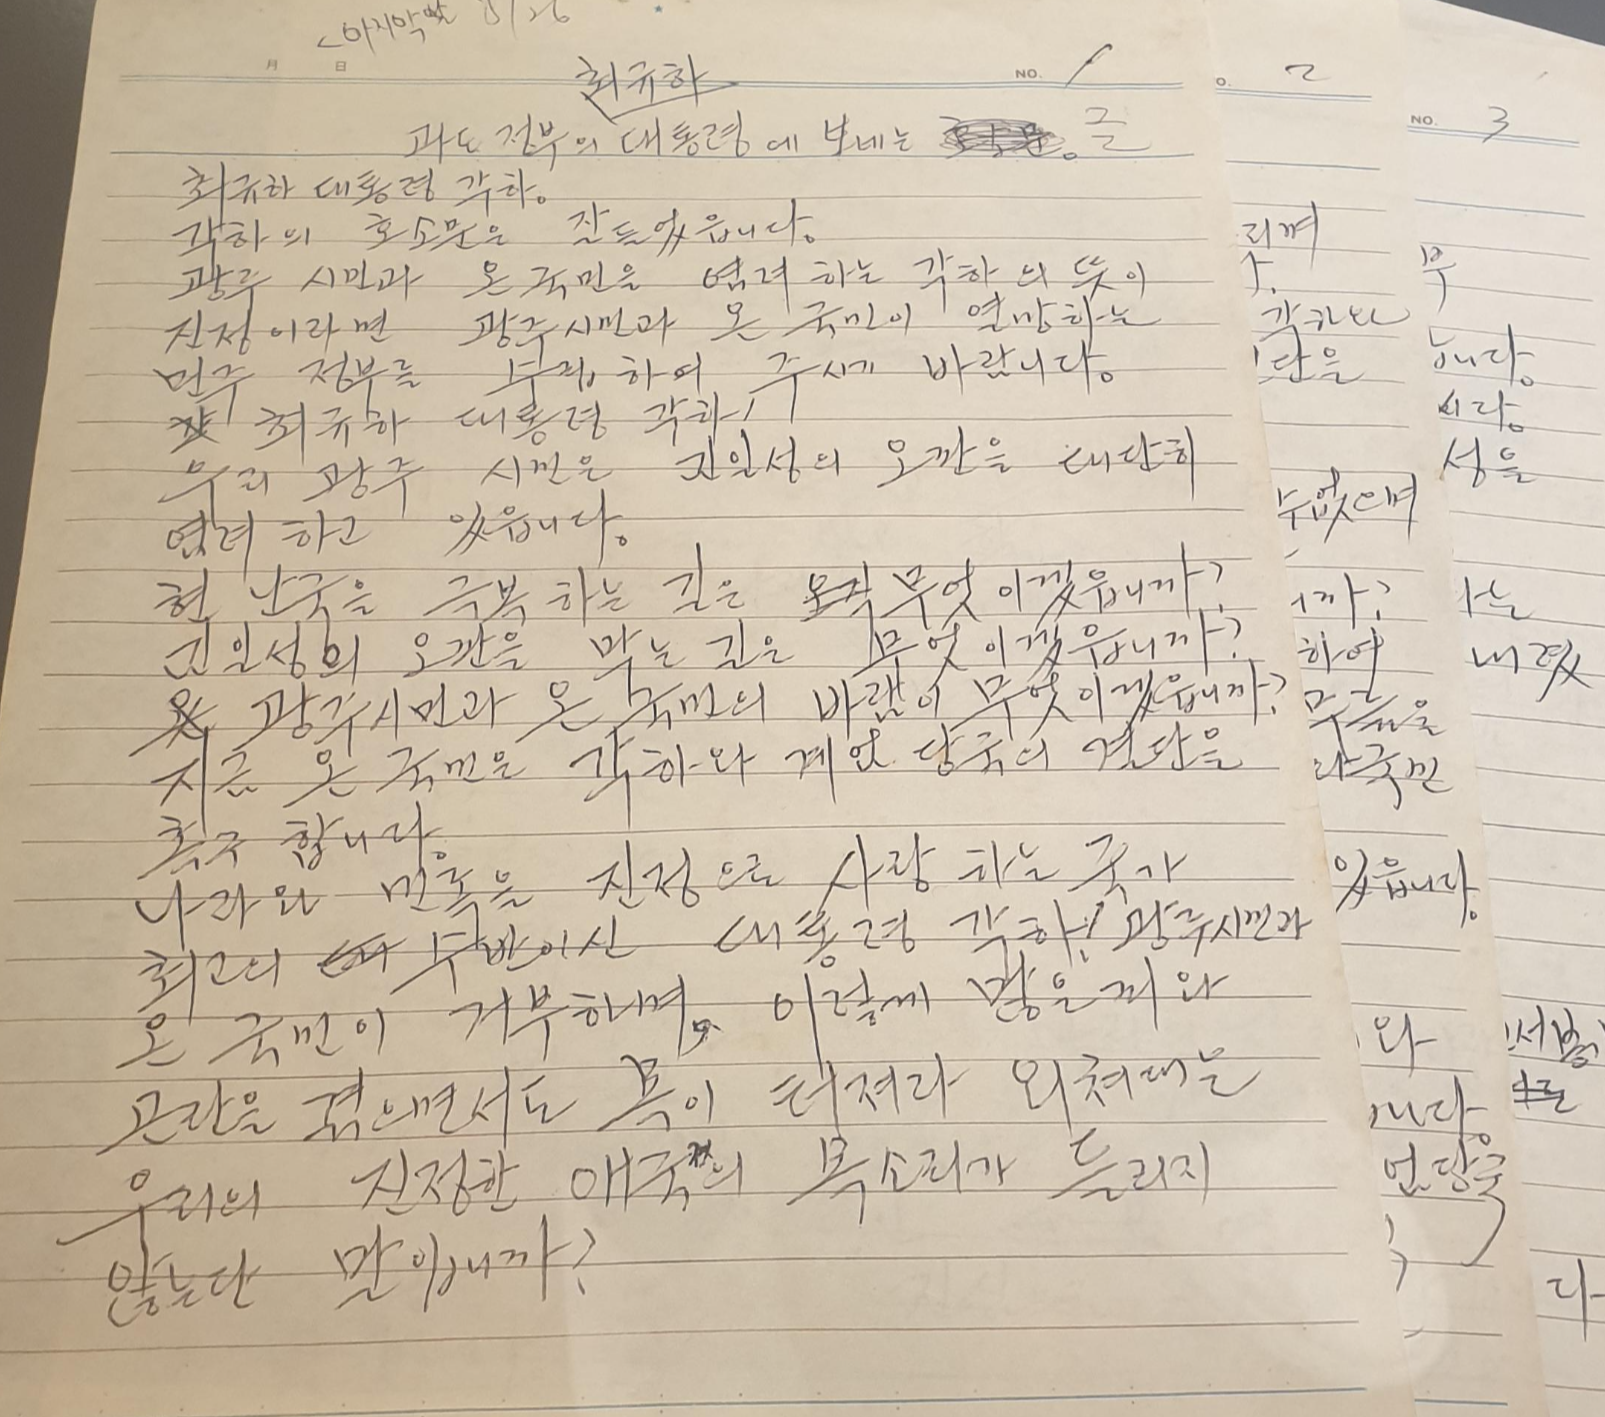 <마지막 날 5/26
月 日
NO. 1
최규하
과도정부의 대통령에 보내는 글
최규하 대통령 각하.
각하의 호소문은 잘 들었읍니다.
광주 시민과 온 국민을 염려하는 각하의 뜻이
진정이라면 광주시민과 온 국민이 열망하는
민주 정부를 하여 주시기 바랍니다.
최규하 대통령 각하!
우리 광주 시민은 김일성의 오판을 대단히
염려하고 있읍니다.
현 난국을 극복하는 길은 무엇이겠읍니까?
김일성의 오판을 막는 길은 무엇이겠읍니까?
광주시민과 온 국민의 바람이 무엇이겠읍니까?
지금 온 국민은 각하와 계엄당국의 결단을
촉구합니다.
나라와 민족을 진정으로 사랑하는 국가
최고의 이신 대통령 각하! 광주시민과
온 국민이 거부하며, 이렇게 많은 피와
곤란을 겪으면서도 목이 터져라 외쳐대는
우리의 진정한 애국의 목소리가 들리지
않는단 말입니까?
2
리며
각하와
단을
수 없으며
니까?
하여
무든을
국민
있읍니다.
와
니다.
엄당국
NO. 3
부
니다.
시다.
성을
하는
내렸
다